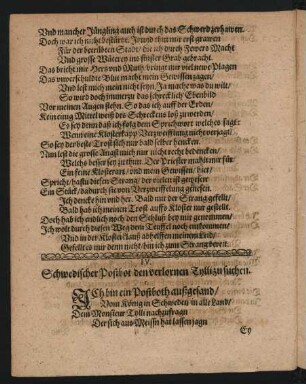 Vnd mancher Jüngling auch ist durch das Schwerd zerhawen.
Doch war ich nicht bestürtzt. Jtzund thut mir erst grawen
Für der betrübten Stadt/ die ich durch Fewers Macht
Vnd grosse Wüterey ins finster Grab gebracht.
Das bricht mir Hertz vnd Muth/ bringt mir viel newe Plagen
Das vnverschuldte Blut macht mein Gewissen zagen/
Vnd lest mich nicht seyn. Ja mache was du wilt/
So wird doch immerzu das schrecklich Ebenbild
Vor meinen Augen stehn. So das ich auff der Erden/
Kein einig Mittel weiß des Schreckens loß zu werden/
Es sey denn daß ich folg dem Sprichwort welches sagt:
Wenn eine Klosterkapp Verzweiffelung nicht verjagt/
So sey der beste Trost sich nur bald selber hencken.
Nun lest die grosse Angst mich nur nicht recht bedencken/
Welchs besser sey zu thun. Der Priester mahlt mir für
Ein feine Klosterart/ vnd mein Gewissen/ hier/
Spricht/ hastu diesen Strang/ der viel mist geheffter
Ein Stück/ dadurch sie von Verzweiffelung genesen.
Jch dencke hin vnd her. Bald mir der Strang gefellt/
Bald hab ich meinen Trost auffs Kloster nur gestellt.
Doch hab ich endlich noch den Schluß bey mir genommen/
Jch wolt durch diesen Weg dem Teuffel noch entkommen/
Vnd in der Kloster Claus abhelffen meinem Leid.
Gefellts mir denn nicht/ bin ich zum Strang bereit.
IV.
Schwedischer Postbot den verlornen Tylli zu suchen.
JCh bin ein Postboth außgesand/
Vom König in Schweden in alle Land/
Dem Monsieur Tylli nachzufragn
Der sich aus Meissn hat lassen jagn
Ey